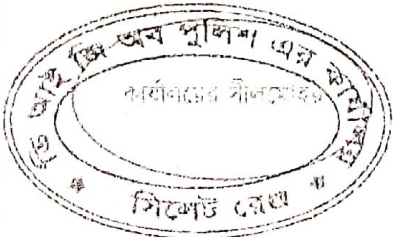 ডি আই জি অব পুলিশ এর কার্যালয়
কার্যালয়ের সীলমোহর
* সিলেট রেঞ্জ *